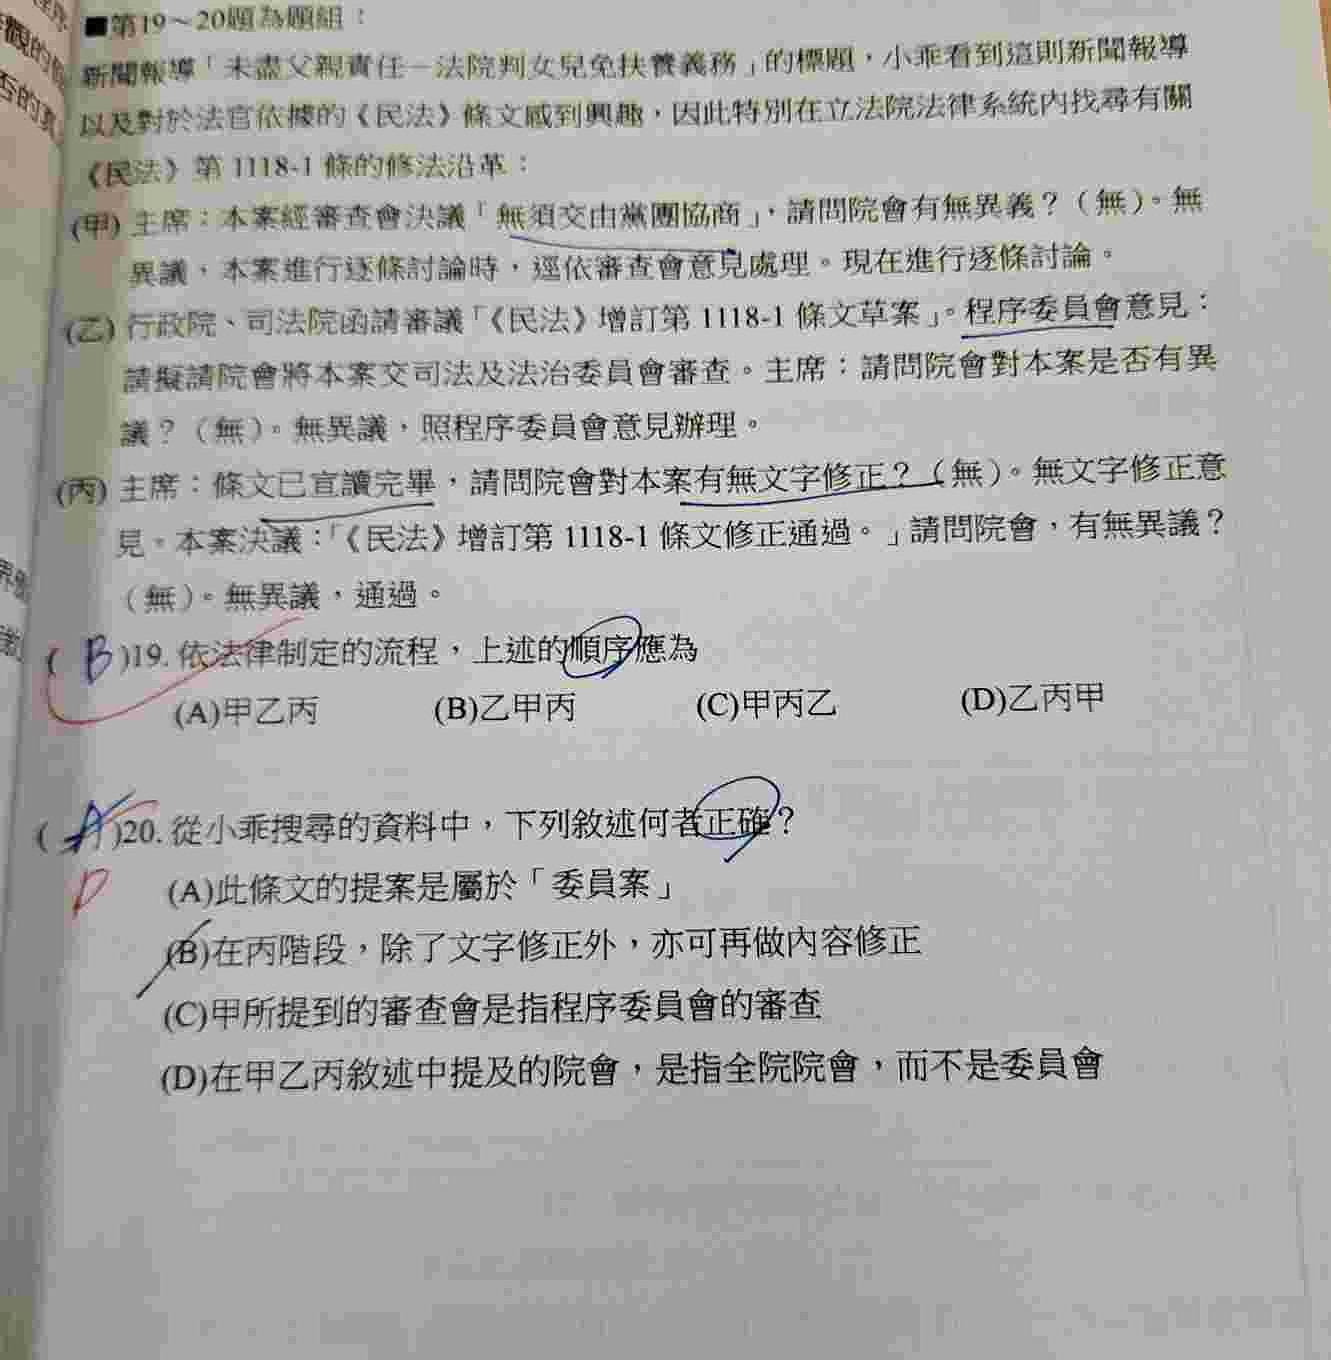 ■第19～20題為題組：
新聞報導「未盡父親責任－法院判女兒免扶養義務」的標題，小乖看到這則新聞報導
以及對於法官依據的《民法》條文感到興趣，因此特別在立法院法律系統內找尋有關
《民法》第 1118-1 條的修法沿革：
(甲) 主席：本案經審查會決議「無須交由黨團協商」，請問院會有無異義？（無）。無
異議，本案進行逐條討論時，逕依審查會意見處理。現在進行逐條討論。
(乙) 行政院、司法院函請審議「《民法》增訂第 1118-1 條文草案」。程序委員會意見：
請擬請院會將本案交司法及法治委員會審查。主席：請問院會對本案是否有異
議？（無）。無異議，照程序委員會意見辦理。
(丙) 主席：條文已宣讀完畢，請問院會對本案有無文字修正？（無）。無文字修正意
見。本案決議：「《民法》增訂第 1118-1 條文修正通過。」請問院會，有無異議？
（無）。無異議，通過。
( B )19. 依法律制定的流程，上述的順序應為
(A)甲乙丙 (B)乙甲丙 (C)甲丙乙 (D)乙丙甲
( A )20. 從小乖搜尋的資料中，下列敘述何者正確？
D
(A)此條文的提案是屬於「委員案」
(B)在丙階段，除了文字修正外，亦可再做內容修正
(C)甲所提到的審查會是指程序委員會的審查
(D)在甲乙丙敘述中提及的院會，是指全院院會，而不是委員會